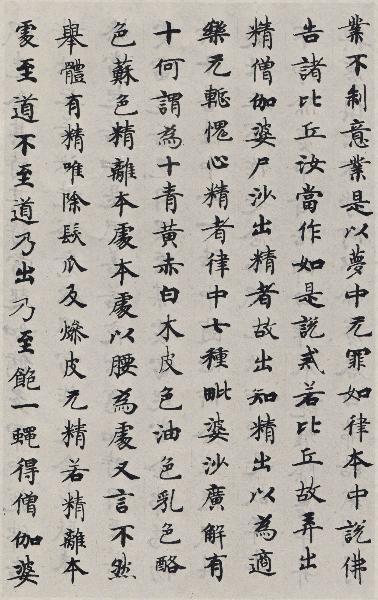 業不制意業是以夢中无罪如律本中說佛
告諸比丘汝當作如是說戒若比丘故弄出
精僧伽婆尸沙出精者故出知精出以為適
樂无輙愧心精者律中七種毗婆沙廣解有
十何謂為十青黃赤白木皮色油色乳色酪
色蘇色精離本處本處以腰為處又言不然
舉體有精唯除髮爪及燥皮无精若精離本
處至道不至道乃出乃至飽一蠅得僧伽婆